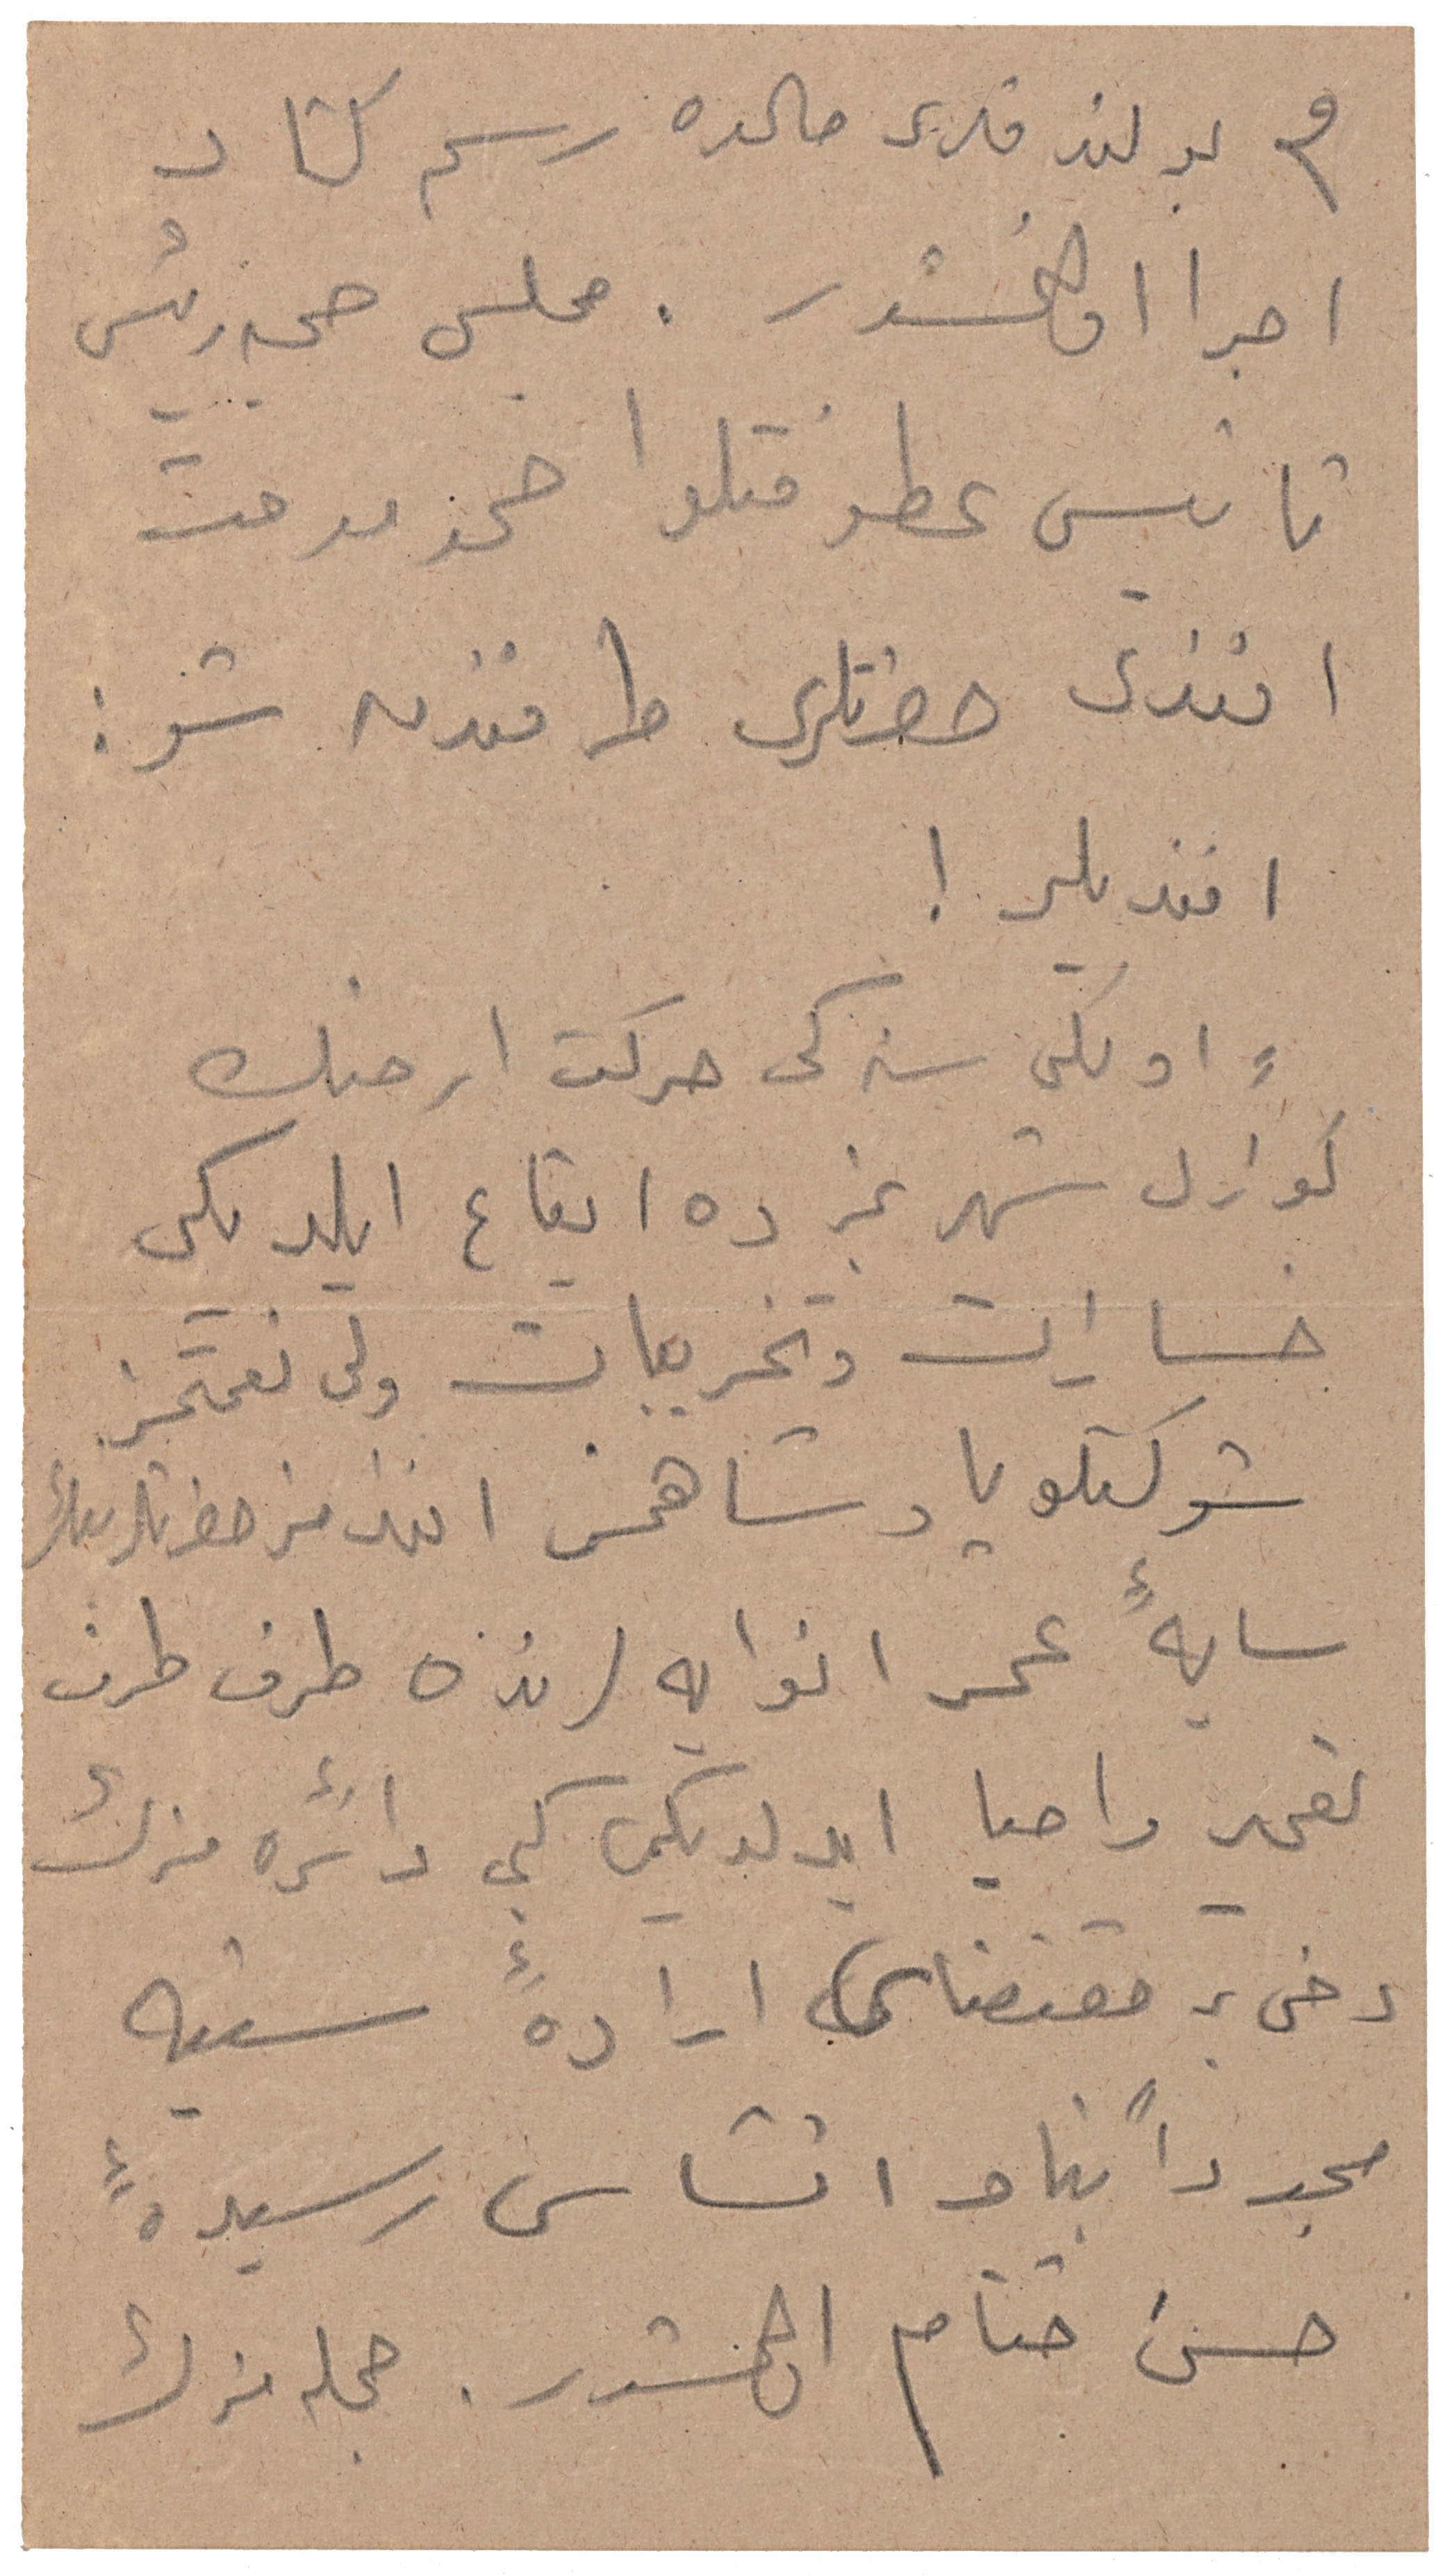 بولندقلری حالده رسم كشاد
اجرا اولنمشدر . مجلس صحیه رئیس
ثانیسی عطوفتلو احمد مدحت
افندی حضرتلری طرفندن شو :
افندیلر !
اولكی سنه كی حركت ارضك
گوزل شهرمزده ایقاع ایلدیكی
خسارات وتخریبات ولی نعمتمز
شوكتلو پادشاهمز افندمز حضرتلرینك
سایهٔ عمرانوایه لرنده طرف طرف
تعمیر واحیا ایدلدیكی كبی دائره مزك
دخی بر مقتضای ارادهٔ سنیه
مجدداً بنا و انشاسی رسیدهٔ
حسن ختام اولمشدر . جمله مزك